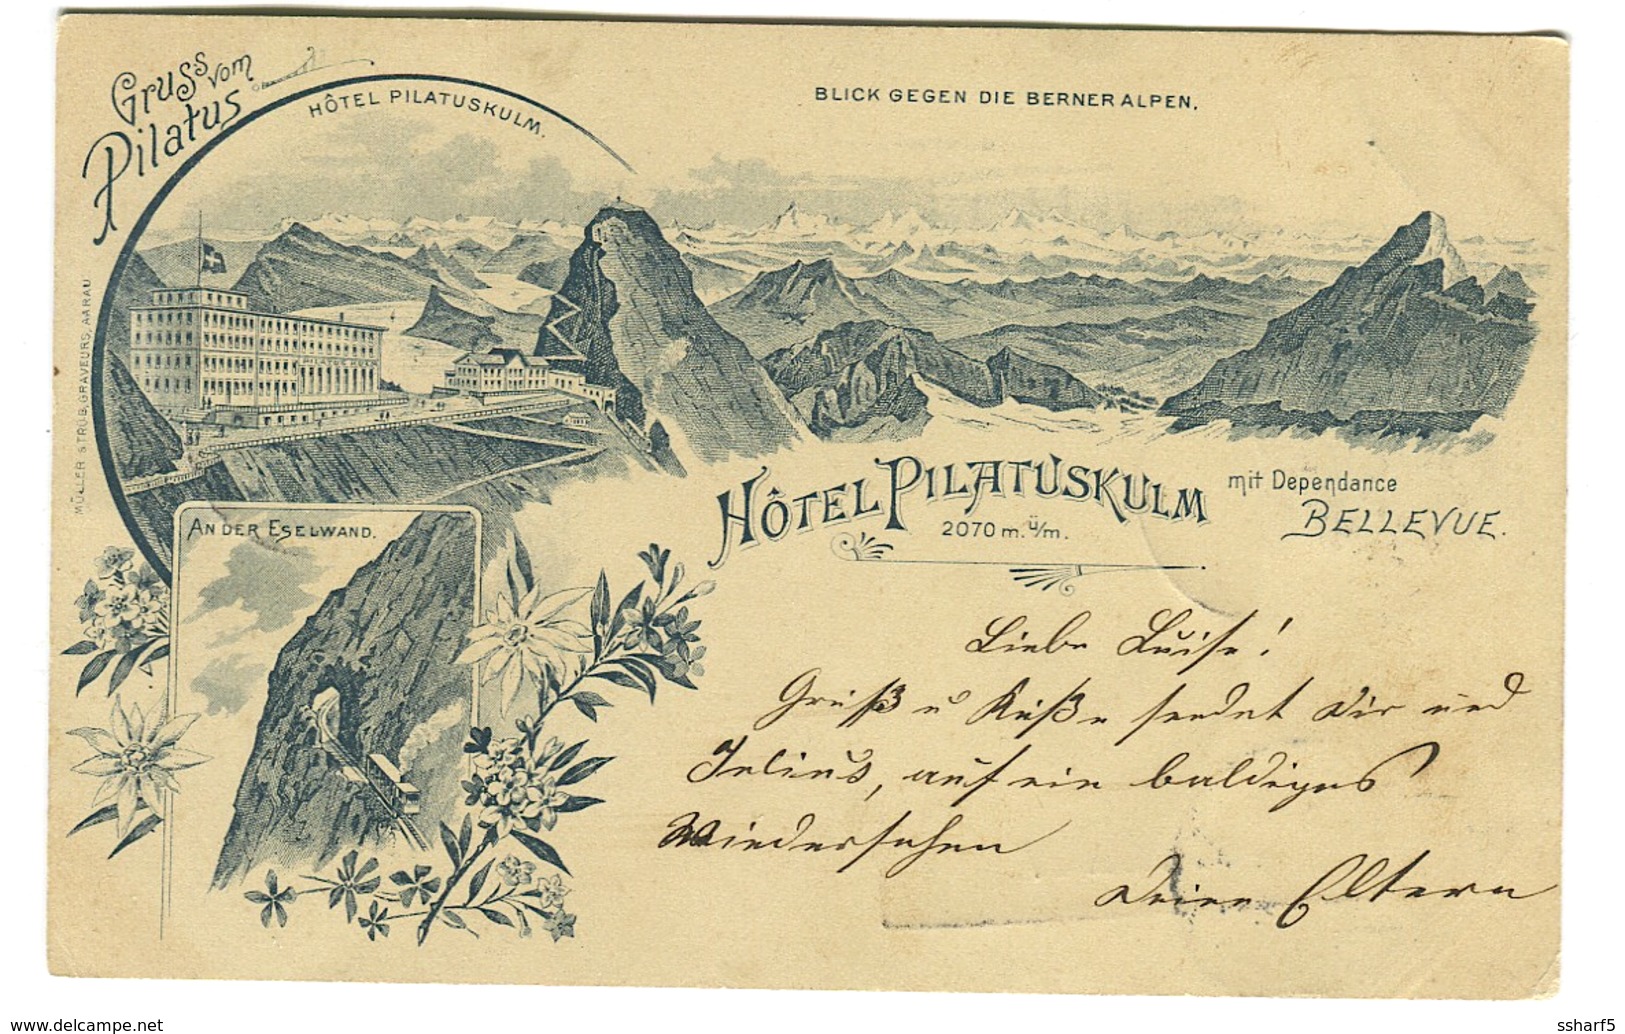 Gruss vom
Pilatus
HÔTEL PILATUSKULM.
BLICK GEGEN DIE BERNERALPEN.
MÜLLER & TRÜB, GRAVEURS, AARAU
AN DER ESELWAND.
HÔTEL PILATUSKULM
2070 m. ü/m.
mit Dependance
BELLEVUE.
Liebe Luise!
Gruß u Küße sendet Dir und
Julius, auf ein baldiges
Wiedersehen
Deine Eltern
delcampe.net
ssharf5